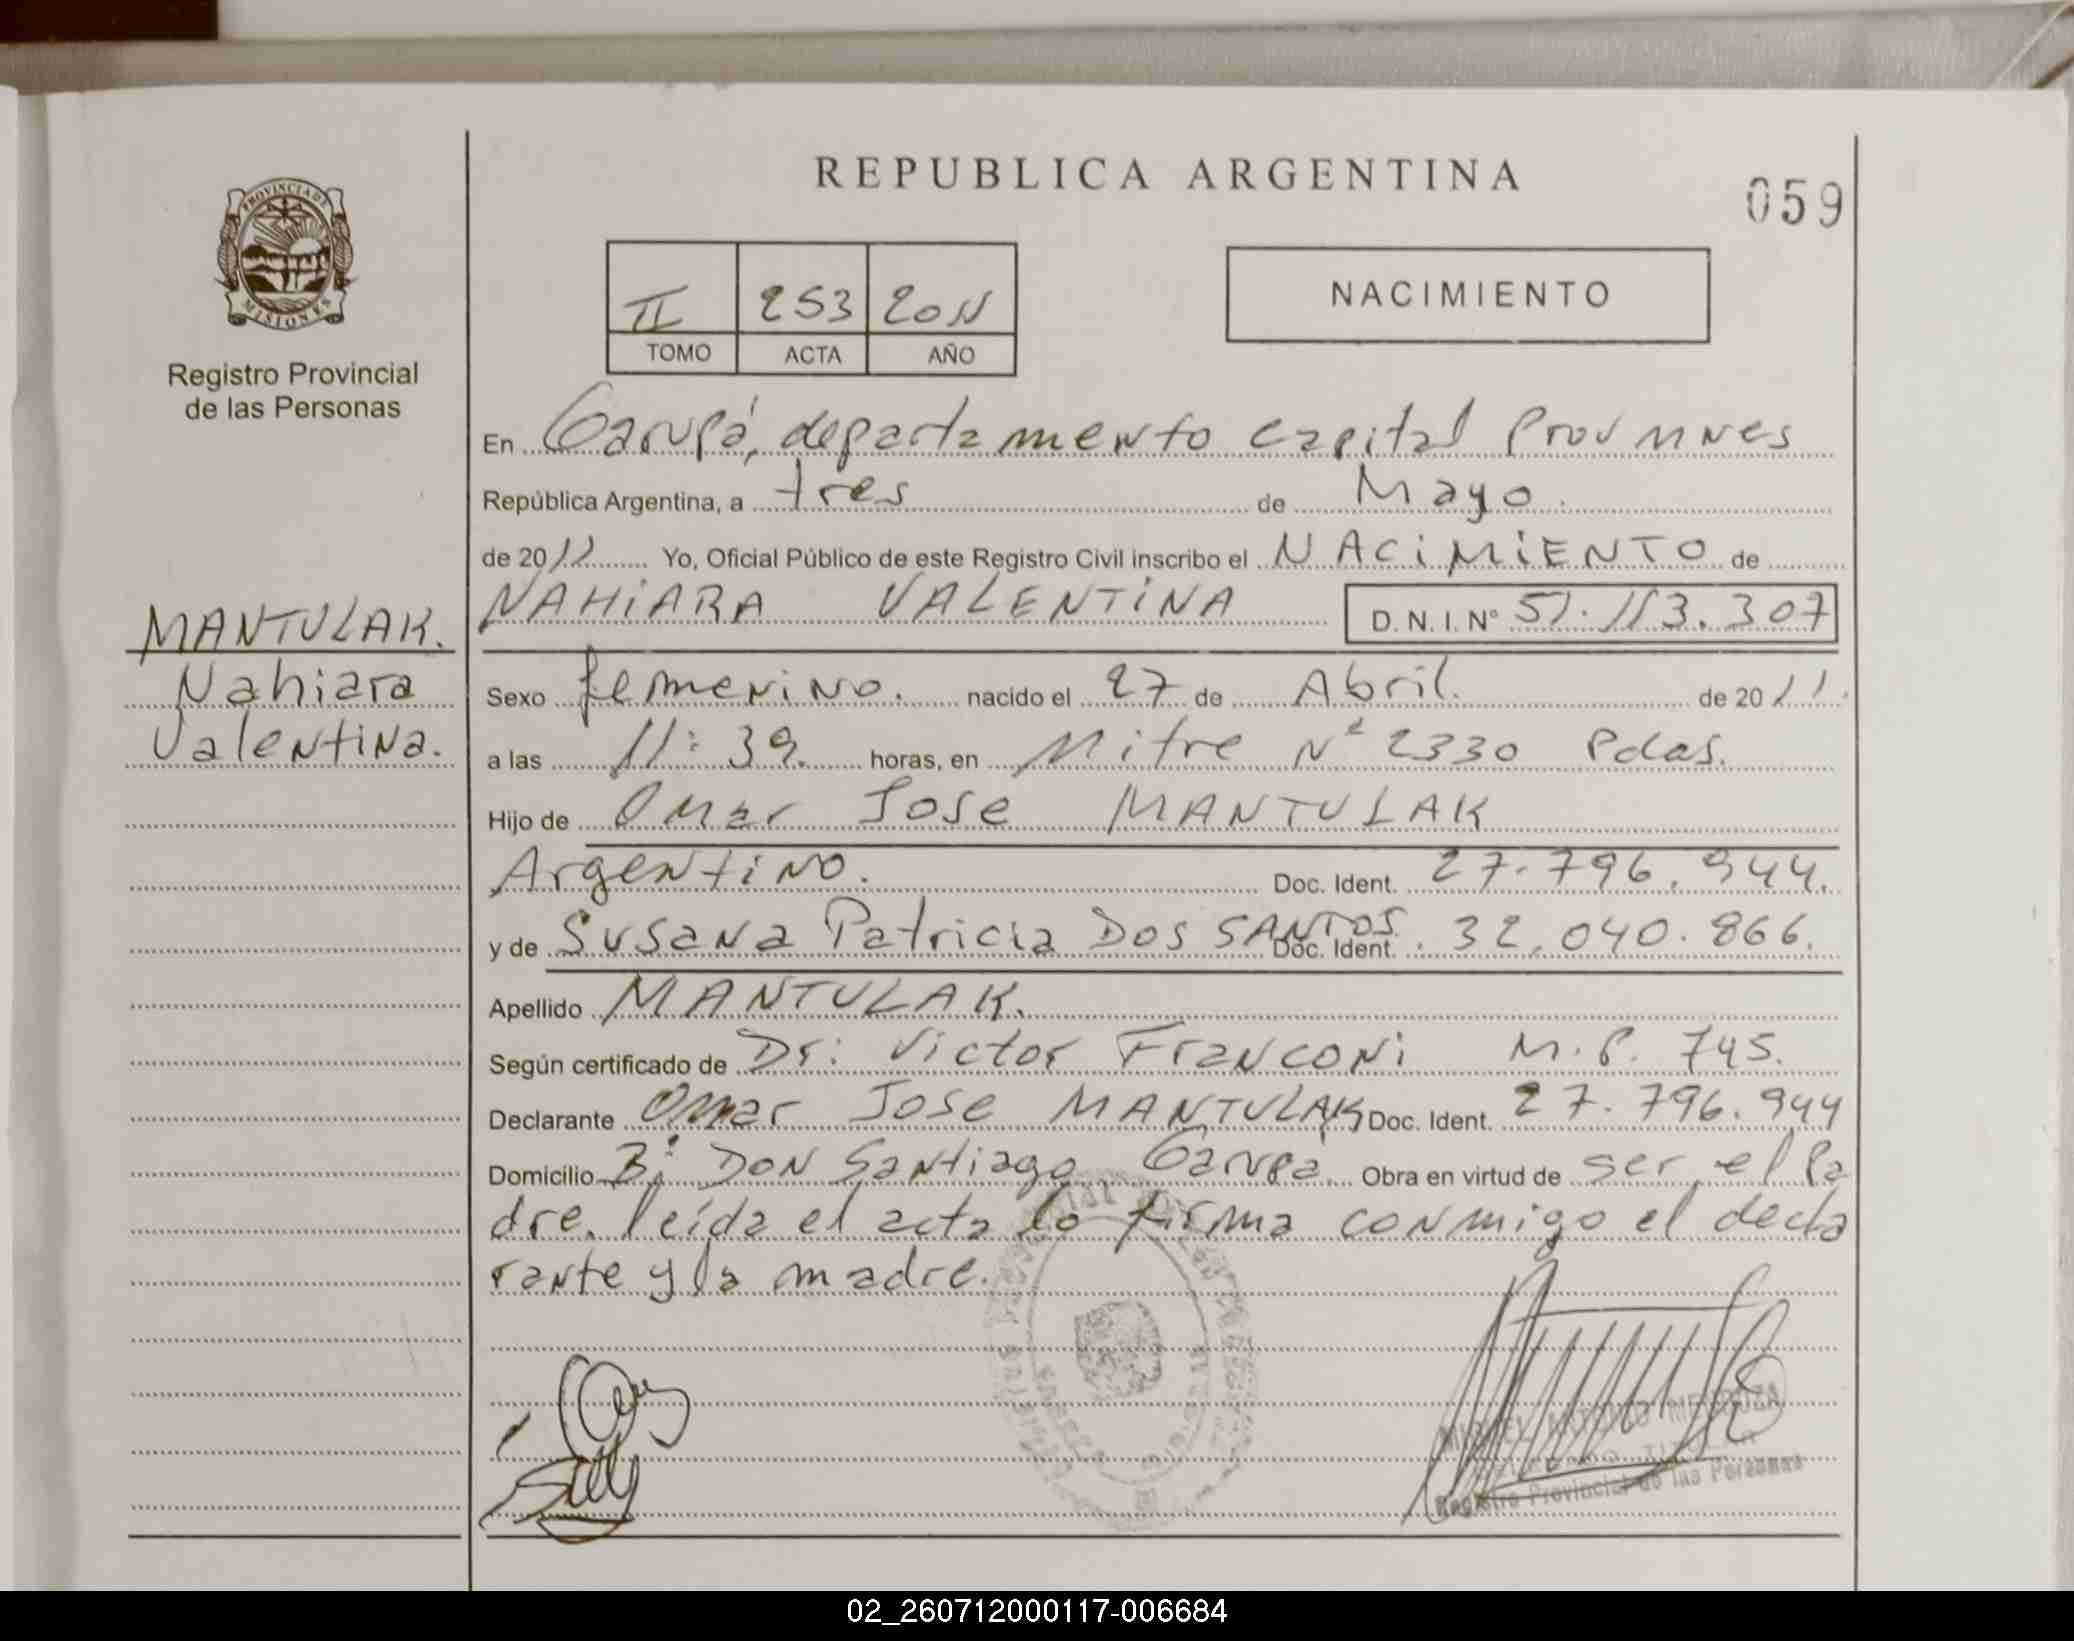 REPUBLICA ARGENTINA
059
PROVINCIA DE
MISIONES
Registro Provincial
de las Personas
II 253 2011
TOMO ACTA AÑO
NACIMIENTO
En Garupá, departamento Capital Prov
República Argentina, a tres de Mayo.
de 2011 Yo, Oficial Público de este Registro Civil inscribo el NACIMIENTO de
NAHIARA VALENTINA D.N.I. Nº 51.113.307
MANTULAK.
Nahiara
Valentina.
Sexo femenino. nacido el 27 de Abril. de 2011.
a las 11:39. horas, en Mitre Nº 2330 Pdas.
Hijo de Omar Jose MANTULAK
Argentino. Doc. Ident. 27.796.944.
y de Susana Patricia DOS SANTOS. Doc. Ident. 32.040.866.
Apellido MANTULAK.
Según certificado de Dr: Victor Franconi M.P. 745.
Declarante Omar Jose MANTULAK Doc. Ident. 27.796.944
Domicilio Bº DON Santiago Garupá. Obra en virtud de ser el Pa
dre. leída el acta lo firma conmigo el decla
rante y la madre.
MIGUEL ANTONIO MENDOZA
TITULAR
Registro Provincial de las Personas
02_260712000117-006684